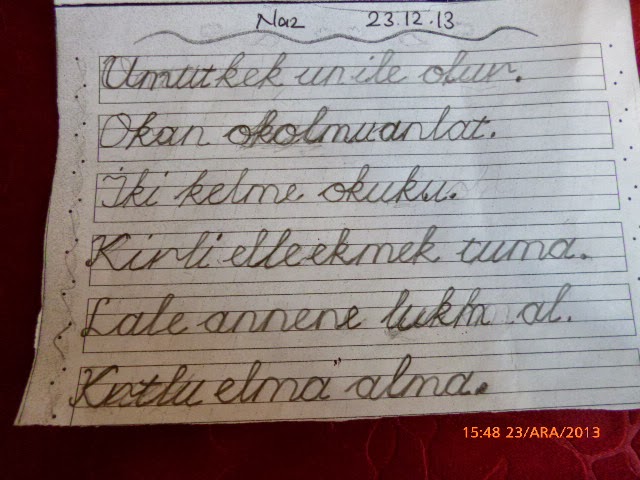 Naz 23.12.13
Umut kek un ile olur.
Okan okolmu anlat.
İki kelme okuku.
Kirli elle ekmek tuma.
Lale annene lukm al.
Kutlu elma" alma.
15:48 23/ARA/2013